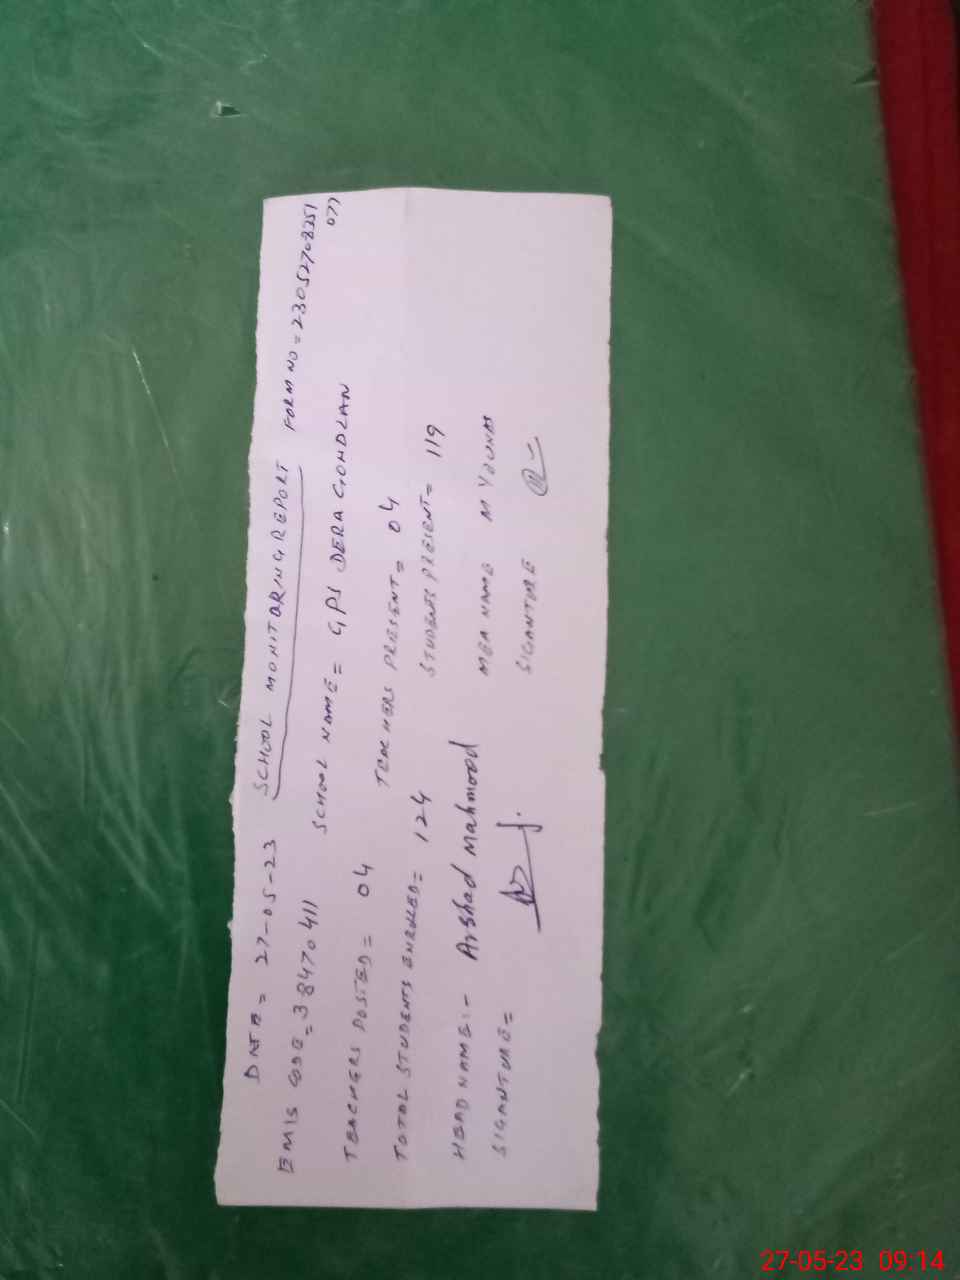 DATE = 27-05-23 SCHOOL MONITORING REPORT FORM NO = 23052708251
077
EMIS CODE = 38470411 SCHOOL NAME = GPS DERA GONDLAN
TEACHERS POSTED = 04 TEACHERS PRESENT = 04
TOTAL STUDENTS ENROLLED = 124 STUDENTS PRESENT = 119
HEAD NAME:- Arshad Mahmood MEA NAME M YOUNAS
SIGANTURE = SIGANTURE
27-05-23 09:14